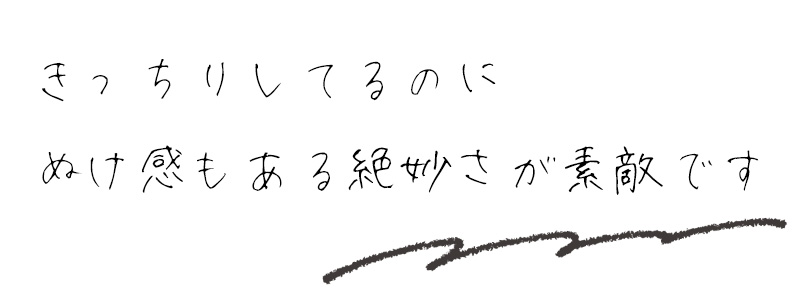 きっちりしてるのに
ぬけ感もある絶妙さが素敵です